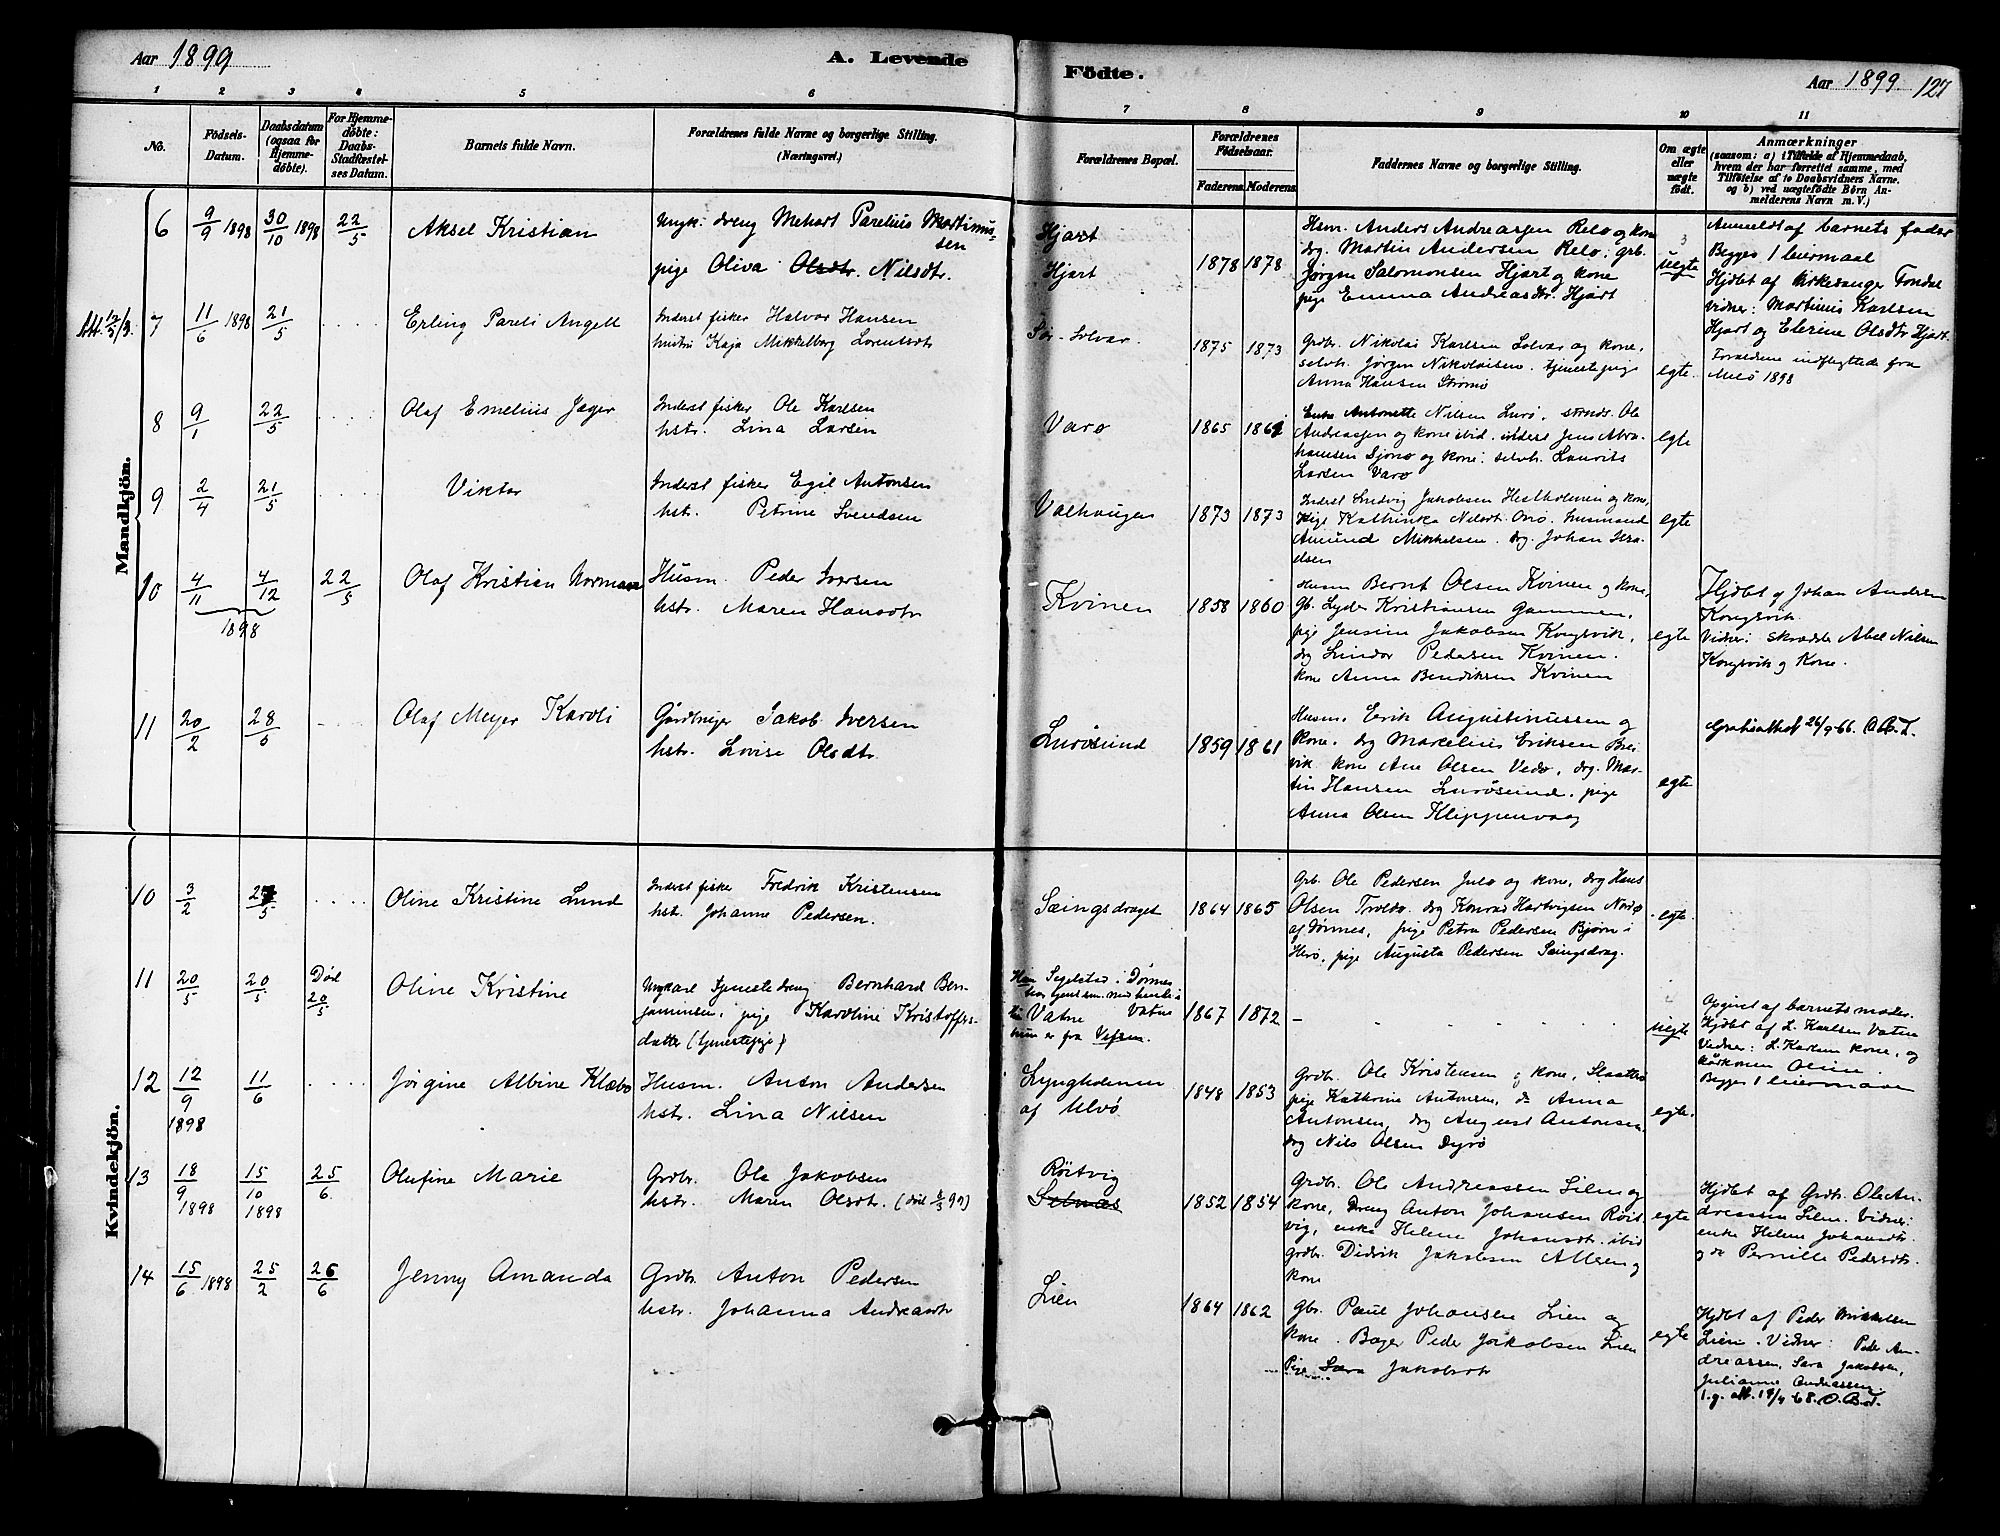 Aar 1899
A. Levende
Födte.
Aar 1899. 127
1 2 3 4 5 6 7 8 9 10 11
No.
Födsels-
Datum.
Daabsdatum
(ogsaa for
Hjemme-
döbte).
For Hjemme-
döbte:
Daabs-
Stadfæstel-
ses Datum.
Barnets fulde Navn.
Forældrenes fulde Navne og borgerlige Stilling.
(Næringsvei.)
Forældrenes Bopæl.
Forældrenes
Födselsaar.
Faderens. Moderens.
Faddernes Navne og borgerlige Stilling.
Om ægte
eller
uægte
födt.
Anmærkninger
(saasom: a) i Tilfælde af Hjemmedaab,
hvem der har forrettet samme, med
Tilföielse af to Daabsvidners Navne.
og b) ved uægtefödte Börn An-
melderens Navn m. V.)
Mandkjön.
6 9/9 1898 30/10 1898 22/5 Aksel Kristian
Ungk. dreng Methart Parelius Martinus-
sen
pige Oliva Olsdtr. Nilsdtr.
Hjart
Hjart
1878 1878
Hsm. Anders Andreassen Relø og kone
drg. Martin Andersen Relø, grb.
Jørgen Salomonsen Hjart og kone
pige Emma Andreasdtr. Hjart
uegte
Anmeldt af barnets fader
Begges 1 leiermaal
Hjdbt af kirkesanger Fondal
vidner: Martinus Karlsen
Hjart og Elerine Olsdtr Hjart.
7 11/6 1898 21/5 Erling Pareli Angell
Inderst fisker Halvor Hansen
hustru Kaja Mikkelborg Lorentsdtr
Sør-Solvær.
1875 1873
Grdbr. Nikolai Karlsen Solvær og kone,
selvh. Jørgen Nikolaisen. tjenestepige
Anna Hansen Strømø
egte.
Forældrene indflyttede fra
Melø 1898
8 9/1 22/5 Olaf Emelius Jager
Inderst fisker Ole Karlsen
hstr. Lina Larsen
Varø
1865 1861
Enke Antonette Nilsen Lurø, strands. Ole
Andreassen og kone ibid. inderst Jens Abra-
hamsen Sjonø og kone. selvh. Laurits
Larsen Varø
egte
9 2/4 21/5 Viktor
Inderst fisker Egil Antonsen
hst. Petrine Svendsen
Valhaugen
1873 1873
Inderst Ludvig Jakobsen Hestholmen og kone,
Pige Kathinka Nilsdt. Onø. husmand
Amund Mikkelsen. drg. Johan Isra-
elsen
egte
10 4/11 4/12 1898 22/5 Olaf Kristian Normann
Husm. Peder Iversen
hstr. Maren Hansdtr
Kvinen
1858 1860
Husm Bernt Olsen Kvinen og kone,
Gb. Lyder Kristiansen Gammen,
pige Jensine Jakobsen Kongsvik,
drg Lindor Pedersen Kvinen.
kone Anna Bendiksen Kvinen
egte
Hjdbt af Johan Andersen
Kongsvik.
Vidner: skrædder Abel Nilsen
Kongsvik og kone.
11 20/2 28/5 Olaf Meyer Karoli
Gårdbruger Jakob Iversen
hstr. Lovise Olsdtr
Lurøsund
1859 1861
Husm. Erik Augustinussen og
kone. drg Markelius Eriksen Brei-
vik kone Ane Olsen Vedø, drg. Mar-
tin Hansen Lurøsund. pige
Anna Olsen Klippenvaag
egte
Gratisattest 26/9-66.
Kvindekjön.
10 3/2 21/5 Oline Kristine Lund
Inderst fisker Fredrik Kristensen
hst. Johanne Pedersen.
Sæingsdraget
1864 1865
Grb. Ole Pedersen Julø og kone, drg Hans
Olsen Troldø. drg Konrad Hartvigsen Nordø
af Dønnes, pige Petra Pedersen Bjørn i
Herø, pige Augusta Pedersen Sæingsdrag.
egte.
11 20/5 20/5 Død 20/5 Oline Kristine
Ungkarl tjenestedreng Bernhard Ben-
jaminsen, pige Karoline Kristoffers-
datter (tjenestepige)
Vatne
hun er fra Vefsen.
1867 1872
uegte
Opgivet af barnets moder.
Hjdbt af L. Karlsen Vatne
Vidner: L. Karlsens kone, og
kårkonen Oline.
Begges 1 leiermaal
12 12/9 1898 11/6 Jørgine Albine Klæbo
Husm. Anton Andersen
hstr. Lina Nilsen
Lyngholmen
af Ulvø
1848 1853
Grdb. Ole Kristensen og kone, Slaatterø
pige Kathrine Antonsen, do Anna
Antonsen, drg August Antonsen,
drg Nils Olsen Dyrø
egte.
13 18/9 1898 15/10 1898 25/6. Olufine Marie
Grdbr. Ole Jakobsen
hstr. Maren Olsdtr.
Røitvig
Selnæs
1852 1854
Grdb. Ole Andreassen Silen og
kone, Dreng Anton Johansen Røit-
vig, enke Helene Johansdtr. ibid
grdbr. Didrik Jakobsen Alteren og
kone
egte
Hjdbt af Grdb. Ole An-
dreassen Silen. Vidner:
enke Helene Johansdtr.
og do Pernille Pedersdtr.
14 15/6 1898 25/2 26/6 Jenny Amanda
Grdbr. Anton Pedersen
hstr. Johanna Andreasdtr
Lien
1864 1862
Gbr. Paul Johansen Lien og
kone. Bager Peder Jakobsen Lien
Pige Sara Jakobsdtr
egte
Hjdbt af Peder Mikkelsen
Lien. Vidner: Peder An-
dreassen, Sara Jakobsen,
Julianne Andreassen.